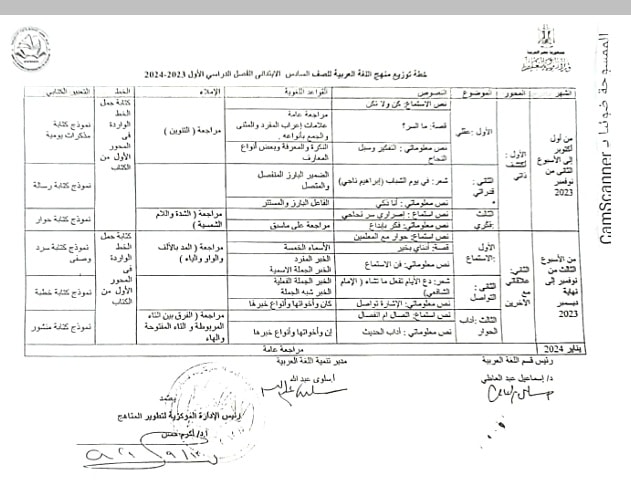 جمهورية مصر العربية
خطة توزيع منهج اللغة العربية للصف السادس الابتدائى الفصل الدراسي الأول 2023-2024
الشهر المحور الموضوع النصوص القواعد اللغوية الإملاء الخط التعبير الكتابي
من أول أكتوبر إلى الأسبوع الثاني من نوفمبر 2023
الأول : أكتشف ذاتي
الأول : عقلي
نص الاستماع: كن ولا تكن
قصة: ما السر؟
نص معلوماتي : التفكير وسبل النجاح
مراجعة عامة
علامات إعراب المفرد والمثنى والجمع بأنواعه .
النكرة والمعرفة وبعض أنواع المعارف
مراجعة ( التنوين )
كتابة جمل الخط الواردة فى المحور الأول من الكتاب
نموذج كتابة مذكرات يومية
الثانى : قدراتي
شعر: في يوم الشباب (إبراهيم ناجي)
نص معلوماتي : أنا ذكي
الضمير البارز المنفصل والمتصل
الفاعل البارز والمستتر
نموذج كتابة رسالة
الثالث : فكري
نص استماع : إصراري سر نجاحي
نص معلوماتي: فكر بإبداع
مراجعة على ماسبق
مراجعة ( الشدة واللام الشمسية )
نموذج كتابة حوار
من الأسبوع الثالث من نوفمبر إلى نهاية ديسمبر 2023
الثاني: علاقاتي مع الآخرين
الأول :الاستماع
نص استماع: حوار مع المعلمين
قصة:
نص معلوماتي: فن الاستماع
الأسماء الخمسة
الخبر المفرد
الخبر الجملة الاسمية
مراجعة ( المد بالألف والواو والياء )
كتابة جمل الخط الواردة فى المحور الأول من الكتاب
نموذج كتابة سرد وصفى
الثانى : التواصل
شعر: دع الأيام تفعل ما تشاء ( الإمام الشافعي)
نص معلوماتي: الإشارة تواصل
الخبر الجملة الفعلية
الخبر شبه الجملة
كان وأخواتها وأنواع خبرها
نموذج كتابة خطبة
الثالث :آداب الحوار
نص استماع: اتصال أم انفصال
نص معلوماتي : آداب الحديث
إن وأخواتها وأنواع خبرها
مراجعة ( الفرق بين التاء المربوطة و التاء المفتوحة والهاء
نموذج كتابة منشور
يناير 2024 مراجعة عامة
رئيس قسم اللغة العربية مدير تنمية اللغة العربية
د/ إسماعيل عبد العاطي أ.سلوى عبد الله
يعتمد
رئيس الإدارة المركزية لتطوير المناهج
أ.د/ أكرم حسن
الممسوحة ضوئيا بـ CamScanner